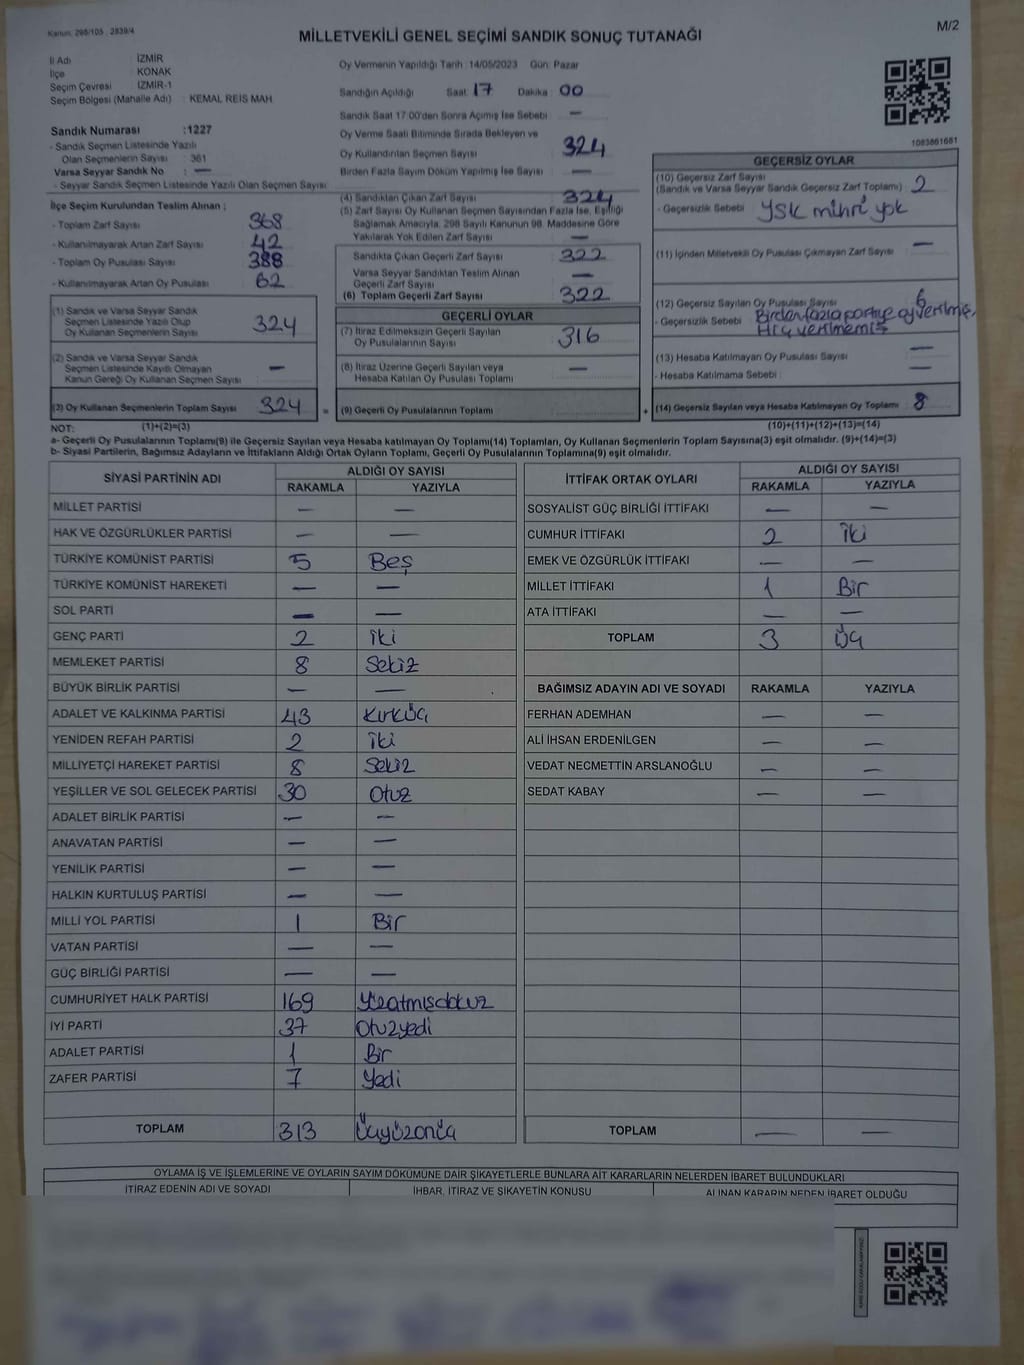 Kanun: 298/105 , 2839/4
M/2
MİLLETVEKİLİ GENEL SEÇİMİ SANDIK SONUÇ TUTANAĞI
İl Adı : İZMİR
İlçe : KONAK
Seçim Çevresi : İZMİR-1
Seçim Bölgesi (Mahalle Adı) : KEMAL REİS MAH
Sandık Numarası :1227
- Sandık Seçmen Listesinde Yazılı
Olan Seçmenlerin Sayısı : 361
Varsa Seyyar Sandık No : —
- Seyyar Sandık Seçmen Listesinde Yazılı Olan Seçmen Sayısı :
İlçe Seçim Kurulundan Teslim Alınan ;
- Toplam Zarf Sayısı : 368
- Kullanılmayarak Artan Zarf Sayısı : 42
- Toplam Oy Pusulası Sayısı : 388
- Kullanılmayarak Artan Oy Pusulası : 62
(1) Sandık ve Varsa Seyyar Sandık
Seçmen Listesinde Yazılı Olup
Oy Kullanan Seçmenlerin Sayısı : 324
(2) Sandık ve Varsa Seyyar Sandık
Seçmen Listesinde Kayıtlı Olmayan
Kanun Gereği Oy Kullanan Seçmen Sayısı : —
(3) Oy Kullanan Seçmenlerin Toplam Sayısı : 324 =
Oy Vermenin Yapıldığı Tarih :14/05/2023 Gün: Pazar
Sandığın Açıldığı Saat: 17 Dakika : 00
Sandık Saat 17:00'den Sonra Açılmış İse Sebebi : —
Oy Verme Saati Bitiminde Sırada Bekleyen ve
Oy Kullandırılan Seçmen Sayısı : 324
Birden Fazla Sayım Döküm Yapılmış İse Sayısı : —
(4) Sandıktan Çıkan Zarf Sayısı : 324
(5) Zarf Sayısı Oy Kullanan Seçmen Sayısından Fazla İse, Eşitliği
Sağlamak Amacıyla, 298 Sayılı Kanunun 98. Maddesine Göre
Yakılarak Yok Edilen Zarf Sayısı : —
Sandıkta Çıkan Geçerli Zarf Sayısı : 322
Varsa Seyyar Sandıktan Teslim Alınan
Geçerli Zarf Sayısı : —
(6) Toplam Geçerli Zarf Sayısı : 322
GEÇERLİ OYLAR
(7) İtiraz Edilmeksizin Geçerli Sayılan
Oy Pusulalarının Sayısı : 316
(8) İtiraz Üzerine Geçerli Sayılan veya
Hesaba Katılan Oy Pusulası Toplamı : —
(9) Geçerli Oy Pusulalarının Toplamı : +
1083861681
GEÇERSİZ OYLAR
(10) Geçersiz Zarf Sayısı
(Sandık ve Varsa Seyyar Sandık Geçersiz Zarf Toplamı) : 2
- Geçersizlik Sebebi : YSK mührü yok
(11) İçinden Milletvekili Oy Pusulası Çıkmayan Zarf Sayısı : —
(12) Geçersiz Sayılan Oy Pusulası Sayısı : 6
- Geçersizlik Sebebi : Birden fazla partiye oy verilmiş,
Hiç verilmemiş
(13) Hesaba Katılmayan Oy Pusulası Sayısı : —
- Hesaba Katılmama Sebebi : —
(14) Geçersiz Sayılan veya Hesaba Katılmayan Oy Toplamı : 8
NOT: (1)+(2)=(3) (10)+(11)+(12)+(13)=(14)
a- Geçerli Oy Pusulalarının Toplamı(9) ile Geçersiz Sayılan veya Hesaba katılmayan Oy Toplamı(14) Toplamları, Oy Kullanan Seçmenlerin Toplam Sayısına(3) eşit olmalıdır. (9)+(14)=(3)
b- Siyasi Partilerin, Bağımsız Adayların ve İttifakların Aldığı Ortak Oyların Toplamı, Geçerli Oy Pusulalarının Toplamına(9) eşit olmalıdır.
SİYASİ PARTİNİN ADI ALDIĞI OY SAYISI
RAKAMLA YAZIYLA
MİLLET PARTİSİ — —
HAK VE ÖZGÜRLÜKLER PARTİSİ — —
TÜRKİYE KOMÜNİST PARTİSİ 5 Beş
TÜRKİYE KOMÜNİST HAREKETİ — —
SOL PARTİ — —
GENÇ PARTİ 2 iki
MEMLEKET PARTİSİ 8 Sekiz
BÜYÜK BİRLİK PARTİSİ — —
ADALET VE KALKINMA PARTİSİ 43 Kırküç
YENİDEN REFAH PARTİSİ 2 iki
MİLLİYETÇİ HAREKET PARTİSİ 8 Sekiz
YEŞİLLER VE SOL GELECEK PARTİSİ 30 Otuz
ADALET BİRLİK PARTİSİ — —
ANAVATAN PARTİSİ — —
YENİLİK PARTİSİ — —
HALKIN KURTULUŞ PARTİSİ — —
MİLLİ YOL PARTİSİ 1 Bir
VATAN PARTİSİ — —
GÜÇ BİRLİĞİ PARTİSİ — —
CUMHURİYET HALK PARTİSİ 169 Yüzatmışdokuz
İYİ PARTİ 37 Otuzyedi
ADALET PARTİSİ 1 Bir
ZAFER PARTİSİ 7 Yedi
TOPLAM 313 Üçyüzonüç
İTTİFAK ORTAK OYLARI ALDIĞI OY SAYISI
RAKAMLA YAZIYLA
SOSYALİST GÜÇ BİRLİĞİ İTTİFAKI — —
CUMHUR İTTİFAKI 2 iki
EMEK VE ÖZGÜRLÜK İTTİFAKI — —
MİLLET İTTİFAKI 1 Bir
ATA İTTİFAKI — —
TOPLAM 3 Üç
BAĞIMSIZ ADAYIN ADI VE SOYADI RAKAMLA YAZIYLA
FERHAN ADEMHAN — —
ALİ İHSAN ERDENİLGEN — —
VEDAT NECMETTİN ARSLANOĞLU — —
SEDAT KABAY — —
TOPLAM — —
OYLAMA İŞ VE İŞLEMLERİNE VE OYLARIN SAYIM DÖKÜMÜNE DAİR ŞİKAYETLERLE BUNLARA AİT KARARLARIN NELERDEN İBARET BULUNDUKLARI
İTİRAZ EDENİN ADI VE SOYADI İHBAR, İTİRAZ VE ŞİKAYETİN KONUSU ALINAN KARARIN NEDEN İBARET OLDUĞU